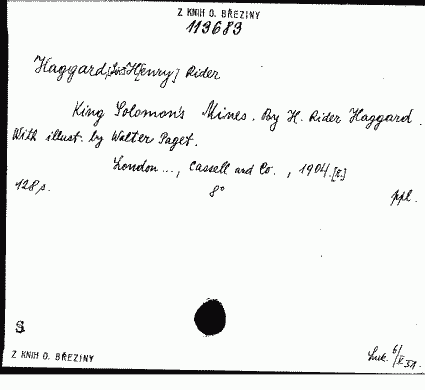 Z KNIH O. BŘEZINY
113683
Haggard, [Sir] H[enry] Rider
King Solomon's Mines. By H. Rider Haggard.
With illust. by Walter Paget.
London..., Cassell and Co., 1904.
128 s. 8° ppl.
S
Z KNIH O. BŘEZINY
Luk. 6/V 31.